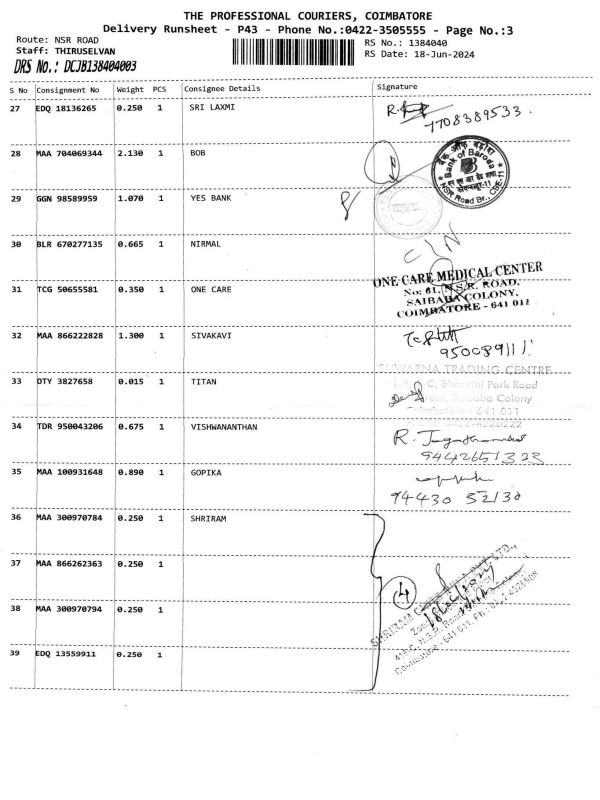 THE PROFESSIONAL COURIERS, COIMBATORE
Delivery Runsheet - P43 - Phone No.:0422-3505555 - Page No.:3
Route: NSR ROAD
RS No.: 1384040
Staff: THIRUSELVAN
RS Date: 18-Jun-2024
DRS No.: DCJB138404003
S No Consignment No Weight PCS Consignee Details Signature
27 EDQ 18136265 0.250 1 SRI LAXMI
7708389533
28 MAA 704069344 2.130 1 BOB
बैंक ऑफ बड़ौदा
Bank of Baroda
NSR Road Br., CBE-11
29 GGN 98589959 1.070 1 YES BANK
30 BLR 670277135 0.665 1 NIRMAL
31 TCG 50655581 0.350 1 ONE CARE
ONE CARE MEDICAL CENTER
No: 61, N.S.R. ROAD.
SAIBABA COLONY,
COIMBATORE - 641 011
32 MAA 866222828 1.300 1 SIVAKAVI
33 OTY 3827658 0.015 1 TITAN
SUWARNA TRADING CENTRE
C, Bharathi Park Road
Cross, Saibaba Colony
Coimbatore - 641 011
0422-4220222
34 TDR 950043206 0.675 1 VISHWANANTHAN
9442651323
35 MAA 100931648 0.890 1 GOPIKA
94430 52130
36 MAA 300970784 0.250 1 SHRIRAM
37 MAA 866262363 0.250 1
38 MAA 300970794 0.250 1
4
SHRIRAM
39 EDQ 13559911 0.250 1